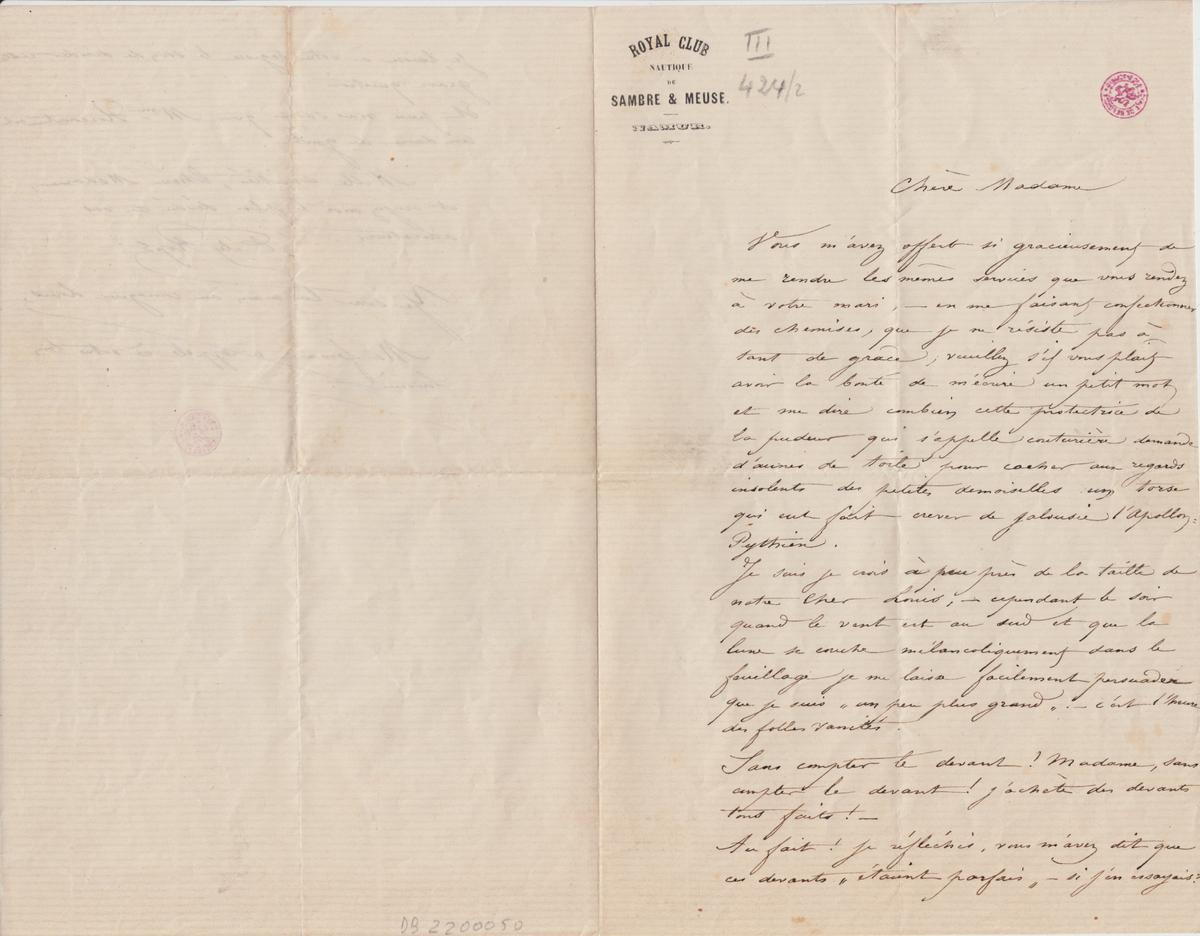 ROYAL CLUB
NAUTIQUE
DE
SAMBRE & MEUSE.
NAMUR.
III
424/2
Chère Madame
Vous m'avez offert si gracieusement de
me rendre les mêmes services que vous rendez
à votre mari, — en me faisant confectionner
des chemises, que je ne résiste pas à
tant de grâce; veuillez s'il vous plait
avoir la bonté de m'écrire un petit mot
et me dire combien cette protectrice de
la pudeur qui s'appelle couturière demande
d'aunes de toile pour cacher aux regards
insolents des petites demoiselles un torse
qui eut fait crever de jalousie l'Apollon-
Pythien.
Je suis je crois à peu près de la taille de
notre cher Louis, — cependant le soir
quand le vent est au sud et que la
lune se couche mélancoliquement dans le
feuillage je me laisse facilement persuader
que je suis „un peu plus grand„ ! — c'est l'heure
des folles vanités.
Sans compter le devant ! Madame, sans
compter le devant ! j'achète des devants
tous faits ! —
Au fait ! je réfléchis, vous m'avez dit que
ces devants „étaient parfais„ — si j'en essayais?
DB 2200050